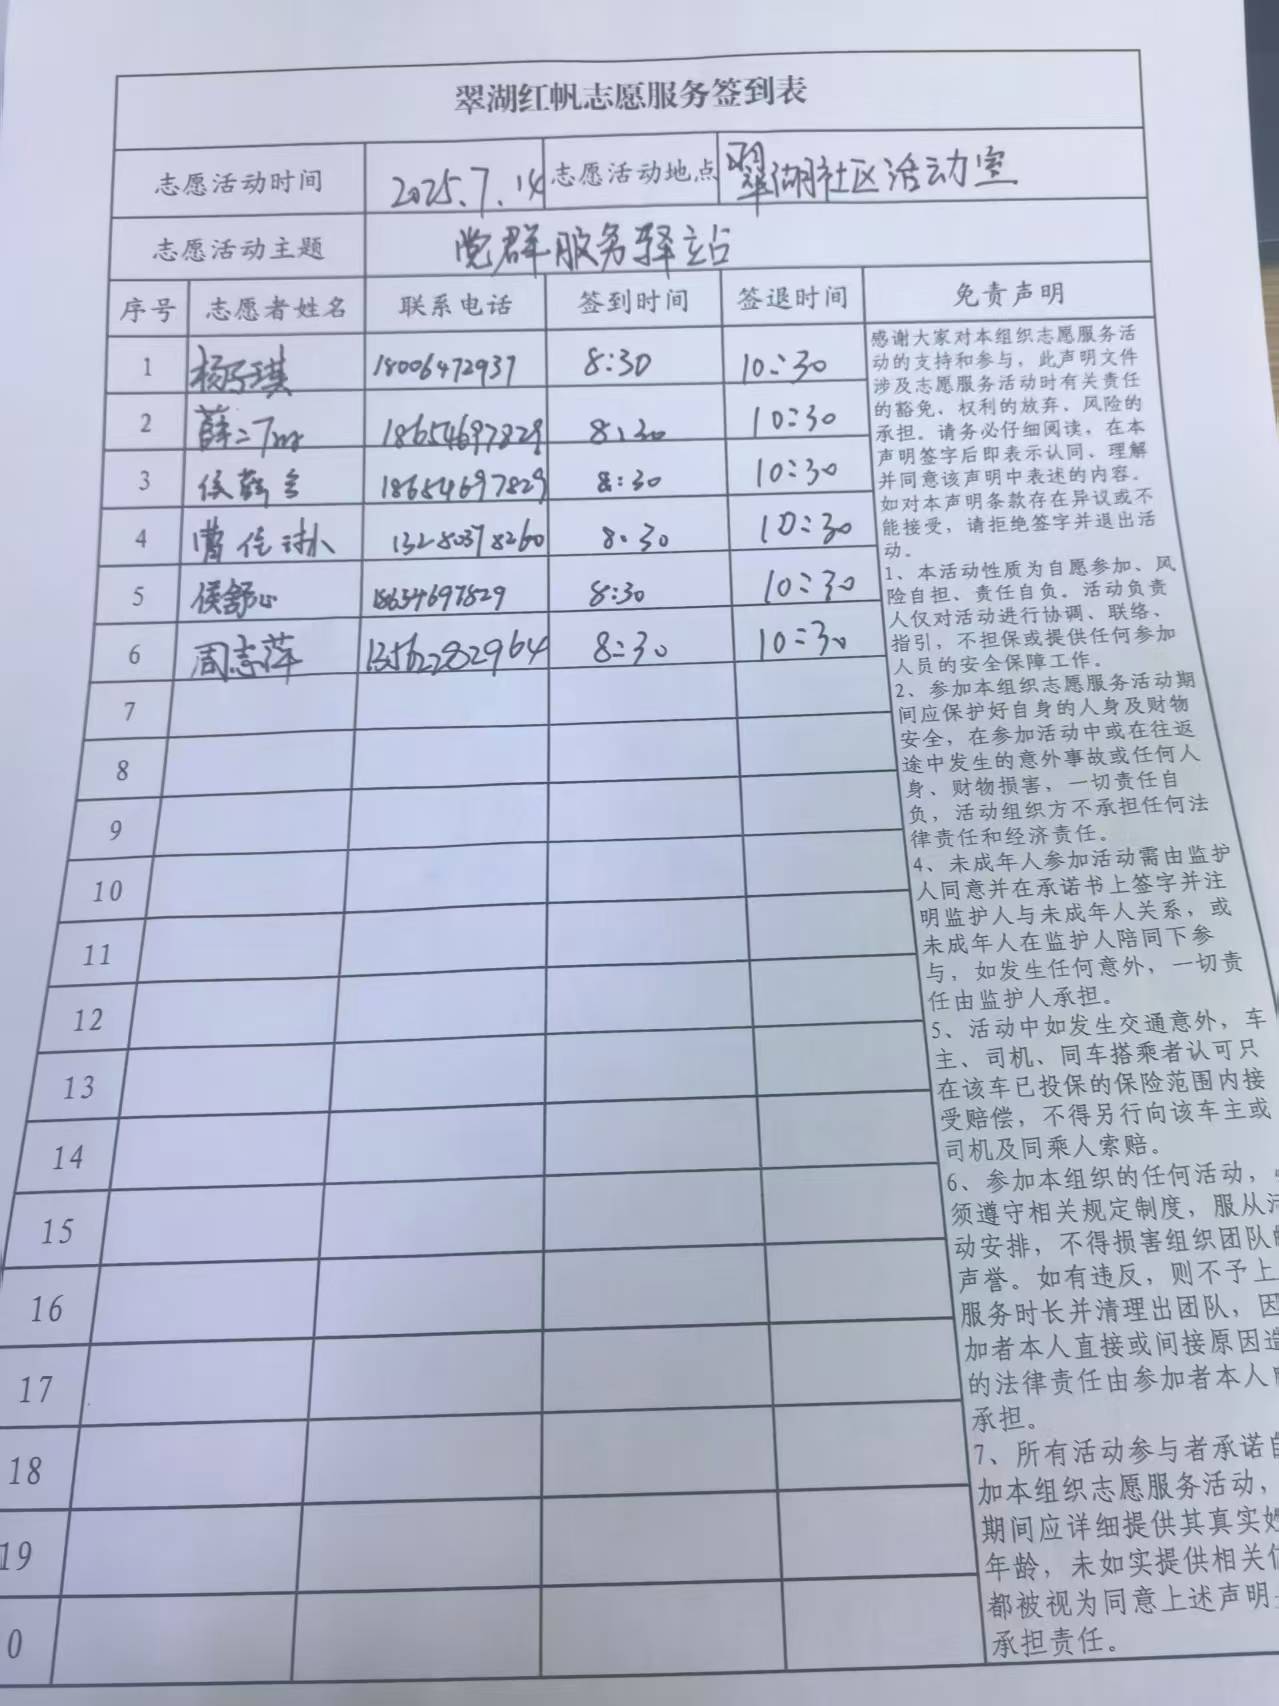 翠湖红帆志愿服务签到表
志愿活动时间 2025.7.14 志愿活动地点 翠湖社区活动室
志愿活动主题 党群服务驿站
序号 志愿者姓名 联系电话 签到时间 签退时间 免责声明
1 杨子琪 18006472937 8:30 10:30
2 薛 18654697829 8:30 10:30
3 侯 18654697829 8:30 10:30
4 曹佳 13280378260 8:30 10:30
5 侯舒心 18654697829 8:30 10:30
6 周志萍 13562282964 8:30 10:30
7
8
9
10
11
12
13
14
15
16
17
18
19
0
感谢大家对本组织志愿服务活
动的支持和参与，此声明文件
涉及志愿服务活动时有关责任
的豁免、权利的放弃、风险的
承担。请务必仔细阅读，在本
声明签字后即表示认同、理解
并同意该声明中表述的内容。
如对本声明条款存在异议或不
能接受，请拒绝签字并退出活
动。
1、本活动性质为自愿参加、风
险自担、责任自负。活动负责
人仅对活动进行协调、联络、
指引，不担保或提供任何参加
人员的安全保障工作。
2、参加本组织志愿服务活动期
间应保护好自身的人身及财物
安全，在参加活动中或在往返
途中发生的意外事故或任何人
身、财物损害，一切责任自
负，活动组织方不承担任何法
律责任和经济责任。
4、未成年人参加活动需由监护
人同意并在承诺书上签字并注
明监护人与未成年人关系，或
未成年人在监护人陪同下参
与，如发生任何意外，一切责
任由监护人承担。
5、活动中如发生交通意外，车
主、司机、同车搭乘者认可只
在该车已投保的保险范围内接
受赔偿，不得另行向该车主或
司机及同乘人索赔。
6、参加本组织的任何活动，
须遵守相关规定制度，服从活
动安排，不得损害组织团队
声誉。如有违反，则不予上
服务时长并清理出团队，因
加者本人直接或间接原因造
的法律责任由参加者本人
承担。
7、所有活动参与者承诺自
加本组织志愿服务活动，
期间应详细提供其真实姓
年龄，未如实提供相关信
都被视为同意上述声明
承担责任。